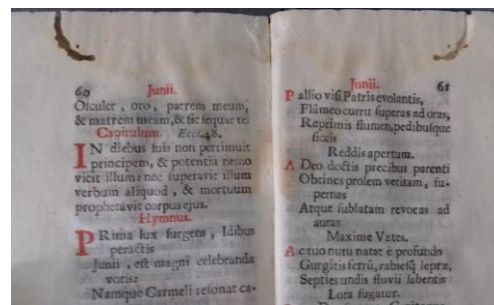 60 Junii.
Osculer, oro, patrem meum,
& matrem meam, & sic sequar te.
Capitulum. Eccl. 48.
IN diebus suis non pertimuit
principem, & potentia nemo
vicit illum: nec superavit illum
verbum aliquod, & mortuum
prophetavit corpus ejus.
Hymnus.
PRima lux surgens, Idibus
peractis
Junii, est magni celebranda
votis:
Namque Carmeli resonat ca-
Junii. 61
Pallio visi Patris evolantis,
Flámeo curru superas ad oras,
Reprimis flumen, pedibusque
siccis
Reddis apertum.
A Deo doctis precibus parenti
Obtines prolem vetitam, su-
pernas
Atque sublatam revocas ad
auras
Maxime Vates.
Ac tuo nutu natat è profundo
Gurgitis ferrū, rabiesq; lepræ,
Septies undis fluvii labentis
Lota fugatur.